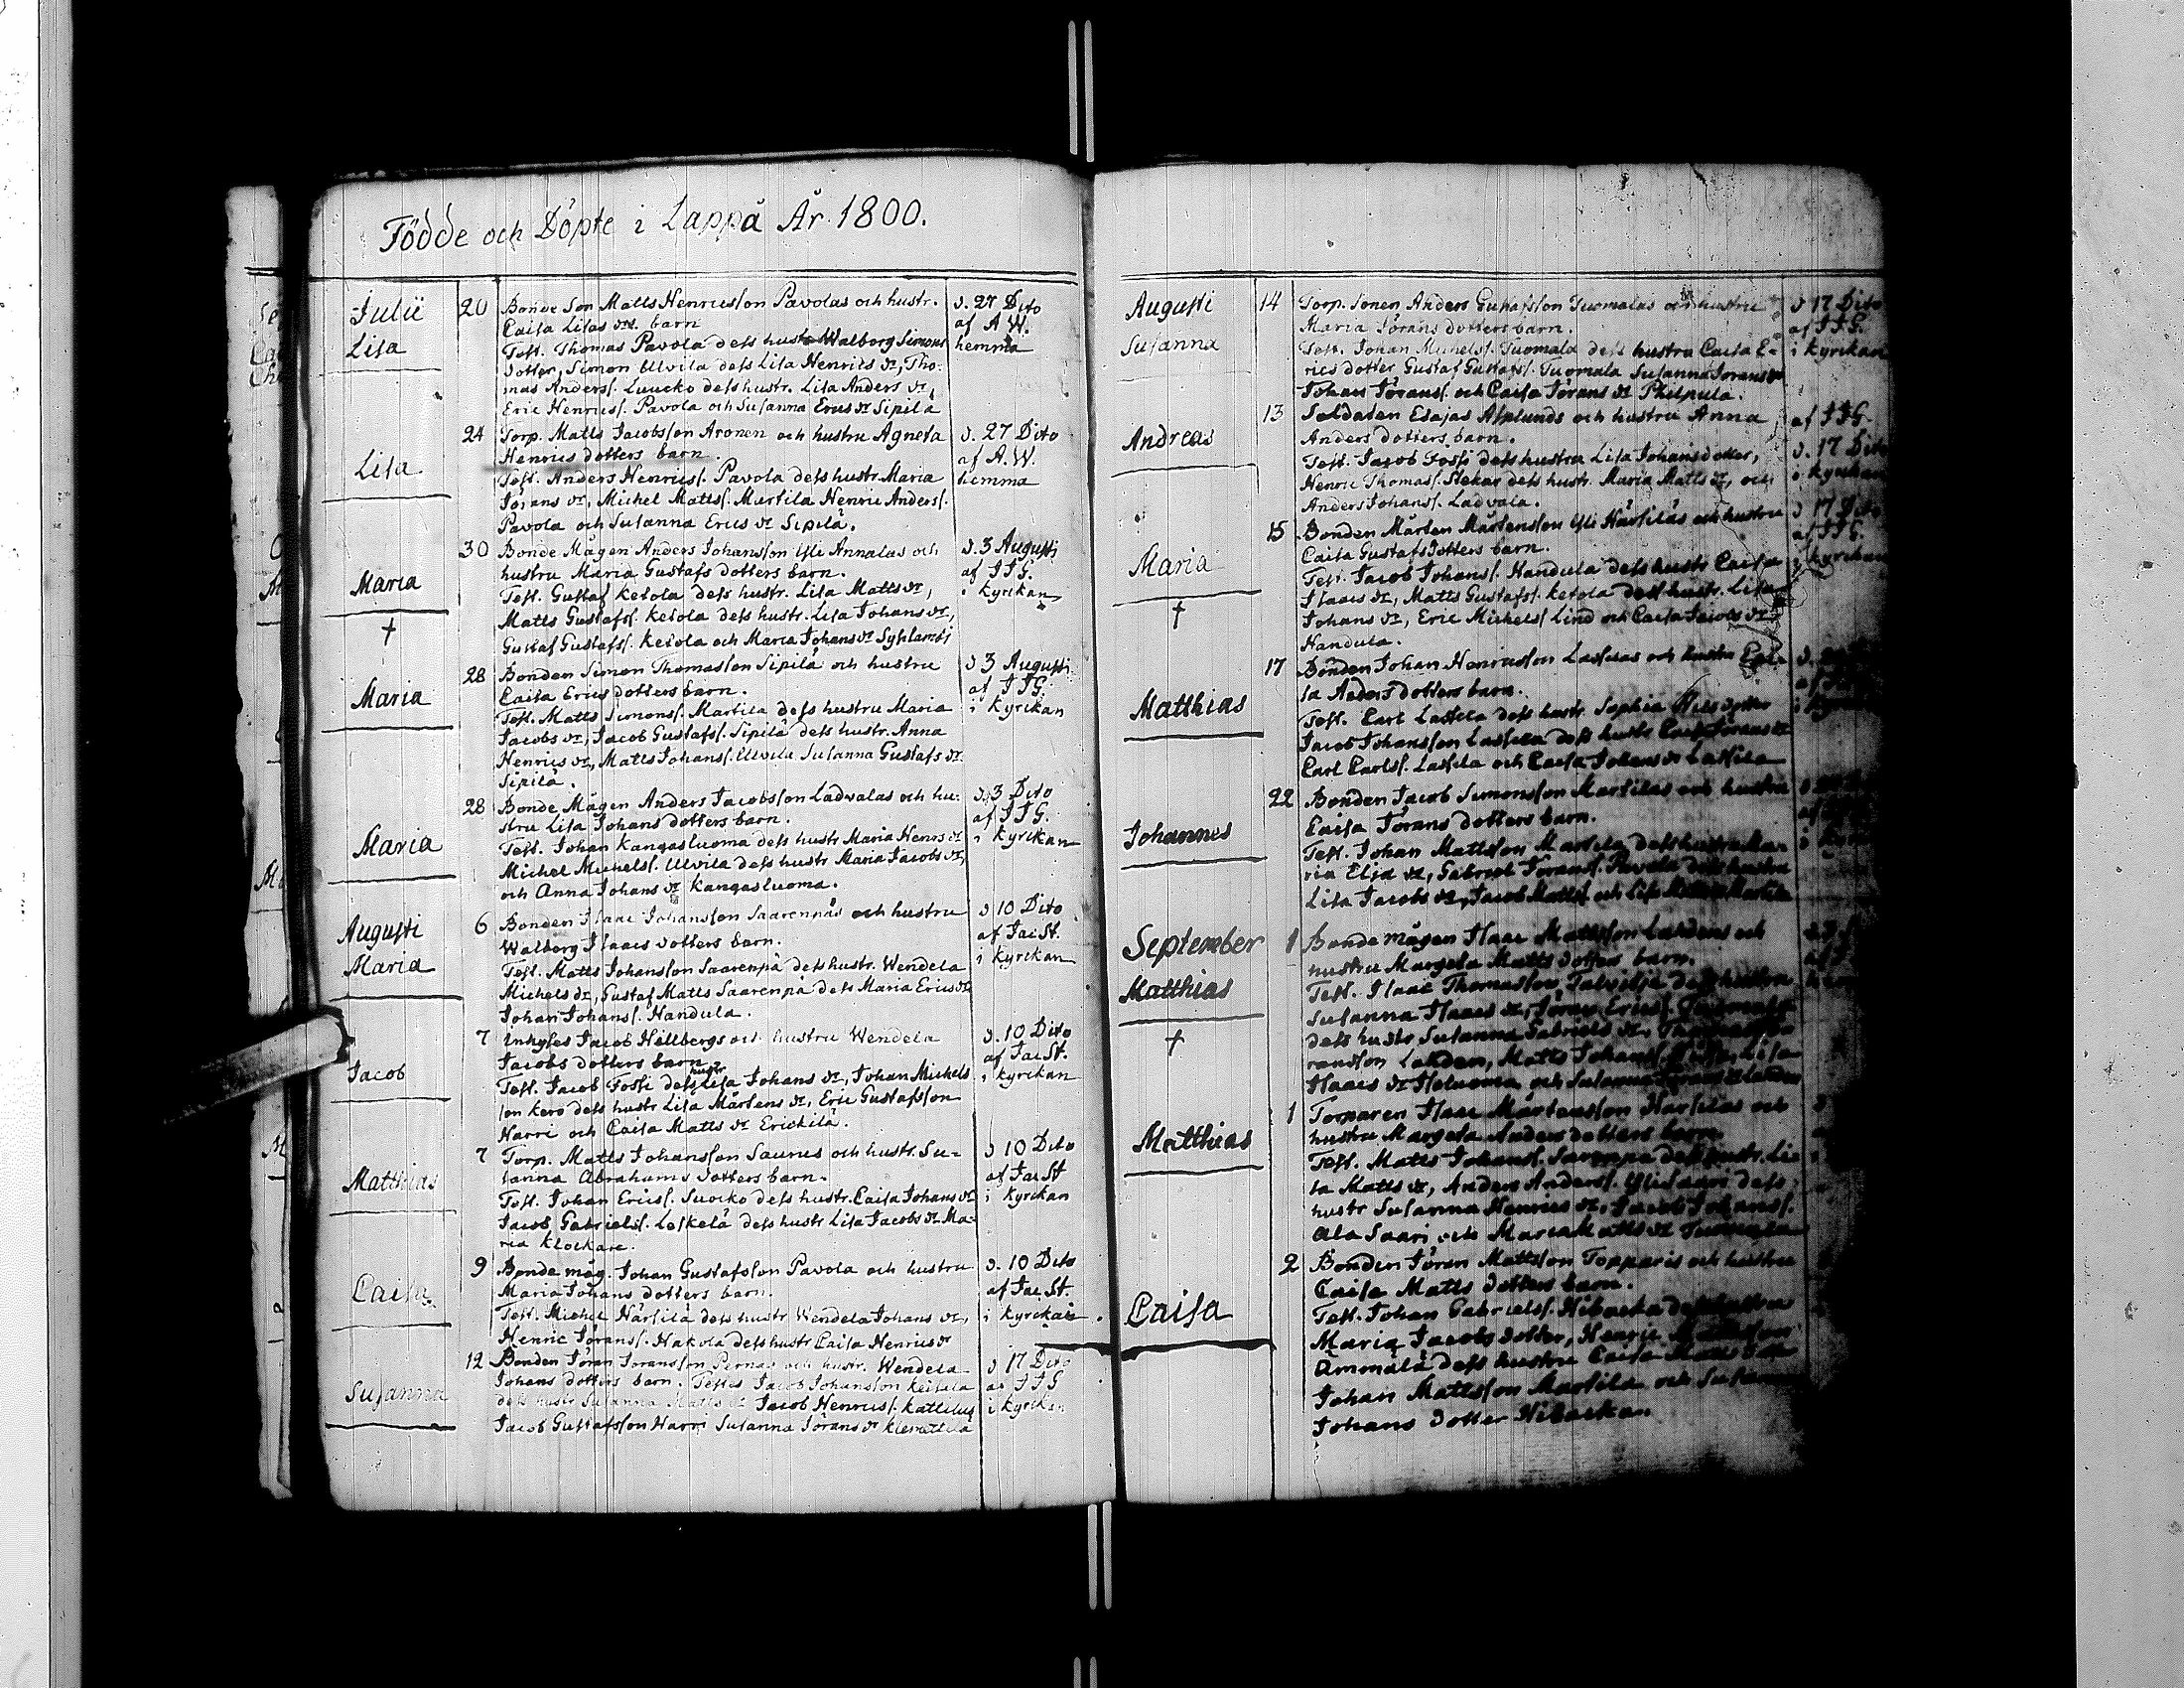 Födde och Döpte i Lappå År 1800.
Julii 20 Bonde Son Matts Henricsson Pavolas och hustr. d. 27 Dito
Caisa Lisas dr. barn af A W.
Lisa Test. Thomas Pavola dess hustr Walborg Simons hemma
dotter, Simon Ulvila dess Lisa Henrics dr, Tho-
mas Anderss. Luucko dess hustr. Lisa Anders dr,
Eric Henricss. Pavola och Susanna Erics dr Sipilä
24 Torp. Matts Jacobsson Aronen och hustru Agneta d. 27 Dito
Henrics dotters barn. af A.W.
Lisa Test. Anders Henricss. Pavola dess hustr Maria hemma
Jörans dr, Michel Mattss. Martila Henric Anderss.
Pavola och Susanna Erics dr Sipilä.
30 Bonde Mågen Anders Johansson Yli Annalas och d. 3 Augusti
hustru Maria Gustafs dotters barn. af J J G.
Maria Test. Gustaf Ketola dess hustr. Lisa Matts dr, i Kyrckan
Matts Gustafss. Ketola dess hustr. Lisa Johans dr,
† Gustaf Gustafss. Ketola och Maria Johans dr Syslambi
28 Bonden Simon Thomasson Sipilä och hustru d 3 Augusti
Caisa Erics dotters barn. af J J G.
Maria Test. Matts Simonss. Martila dess hustru Maria i Kyrckan
Jacobs dr, Jacob Gustafss. Sipilä dess hustr. Anna
Henrics dr, Matts Johanss. Ulvila Susanna Gustafs dr.
Sipilä.
28 Bonde Mågen Anders Jacobsson Ladvalas och hu- d. 3 Dito
stru Lisa Johans dotters barn. af J J G.
Maria Test. Johan Kangasluoma dess hustr Maria Henrs dr i Kyrckan
Michel Michelss. Ulvila dess hustr Maria Jacobs dr,
och Anna Johans dr Kangasluoma.
Augusti 6 Bonden Isaac Johansson Saarenpäs och hustru d 10 Dito
Walborg Isaacs dotters barn. af Jac St.
Maria Test. Matts Johansson Saarenpä dess hustr. Wendela i Kyrckan
Michels dr, Gustaf Matts Saarenpä dess Maria Erics dr
Johan Johanss. Handula.
7 Inhyses Jacob Hellbergs och hustru Wendela d. 10 Dito
Jacobs dotters barn. af Jac St.
Jacob Test. Jacob Fossi dess hustr Lisa Johans dr, Johan Michels i Kyrckan
son Kero dess hustr Lisa Mårtens dr, Eric Gustafsson
Harri och Caisa Matts dr Erickilä.
7 Torp. Matts Johansson Saunus och hustr. Su- d 10 Dito
sanna Abrahams dotters barn. af Jac St
Matthias Test. Johan Ericss. Suocko dess hustr. Caisa Johans dr i Kyrckan
Jacob Gabrielss. Leskelä dess hustr Lisa Jacobs dr Ma-
ria Klockare.
9 Bonde måg. Johan Gustafsson Pavola och hustru d. 10 Dito
Maria Johans dotters barn. af Jac St.
Caisa Test. Michel Härsilä dess hustr Wendela Johans dr, i Kyrckan
Henric Jöranss. Hakola dess hustr Caisa Henrics dr
12 Bonden Jöran Joransson Pernas och hustr. Wendela d 17 Dito
Johans dotters barn. Testes Jacob Johansson Keisala af J J G
Susanna dess hustr Susanna Matts dr Jacob Henricss. Kattilus i Kyrckan
Jacob Gustafsson Harri Susanna Jörans dr Klemettilä
Augusti 14 Torp. Sonen Anders Gustafsson Tuomalas och hustru d 17 Dito
Maria Jörans dotters barn. af J J G.
Susanna Test. Johan Michelss. Tuomala dess hustru Caisa E- i Kyrckan
rics dotter Gustaf Gustafss. Tuomala Susanna Jorans dr
Johan Jöranss. och Caisa Jörans dr Philpula.
13 Soldaten Esajas Asplunds och hustru Anna af J J G.
Andreas Anders dotters barn. d. 17 Dito
Test. Jacob Fossi dess hustru Lisa Johansdotter, i Kyrckan
Henric Thomass. Slekar dess hustr. Maria Matts dr, och
Anders Johanss. Ladvala.
15 Bonden Mårten Mårtensson Yli Härsiläs och hustru d 17 Dito
Caisa Gustafs dotters barn. af J J G.
Maria Test. Jacob Johanss. Handula dess hustr Caisa i Kyrckan
Isaacs dr, Matts Gustafss. Ketola dess hustr. Lisa
† Johans dr, Eric Michelss Lind och Caisa Jacobs dr
Handula.
17 Bonden Johan Henricsson Lassilas och hustru Cai-
sa Anders dotters barn.
Matthias Test. Carl Lassila dess hustr. Sophia Nils dotter
Jacob Johansson Lassila dess hustr Caisa Jörans dr
Carl Carlss. Lassila och Caisa Johans dr Lassila
22 Bonden Jacob Simonsson Martilas och hustru
Caisa Jörans dotters barn.
Johannes Test. Johan Mattsson Martila dess hustru Ma-
ria Elja dr, Gabriel Joranss. Pavola dess hustru
Lisa Jacobs dr, Jacob Mattss. och Lisa Martila
September 1 Bonde mågen Isaac Mattsson Lahdens och
hustru Margeta Matts dotters barn.
Matthias Test. Isaac Thomasson Talvitje dess hustru
Susanna Isaacs dr, Jöran Ericss.
† dess hustr Susanna Gabriels dr,
ransson Lahden, Matts Johanss. Lisa
Isaacs dr Isoluoma och Susanna
1 Torparen Isaac Mårtensson Härsiläs och
Matthias hustru Margeta Anders dotters barn.
Test. Matts Johanss. Sarenpä dess hustr. Li-
sa Matts dr, Anders Anderss. Ylisaari dess
hustr Susanna Henrics dr, Jacob Johanss.
Ala Saari och Maria Matts dr Tuomala
2 Bonden Jöran Mattsson Topparis och hustru
Caisa Matts dotters barn.
Caisa Test. Johan Gabrielss. Hibacka dess hustru
Maria Jacobs dotter, Henric
Ammälä dess hustru Caisa
Johan Mattsson Martila och Susanna
Johans dotter Hibackan